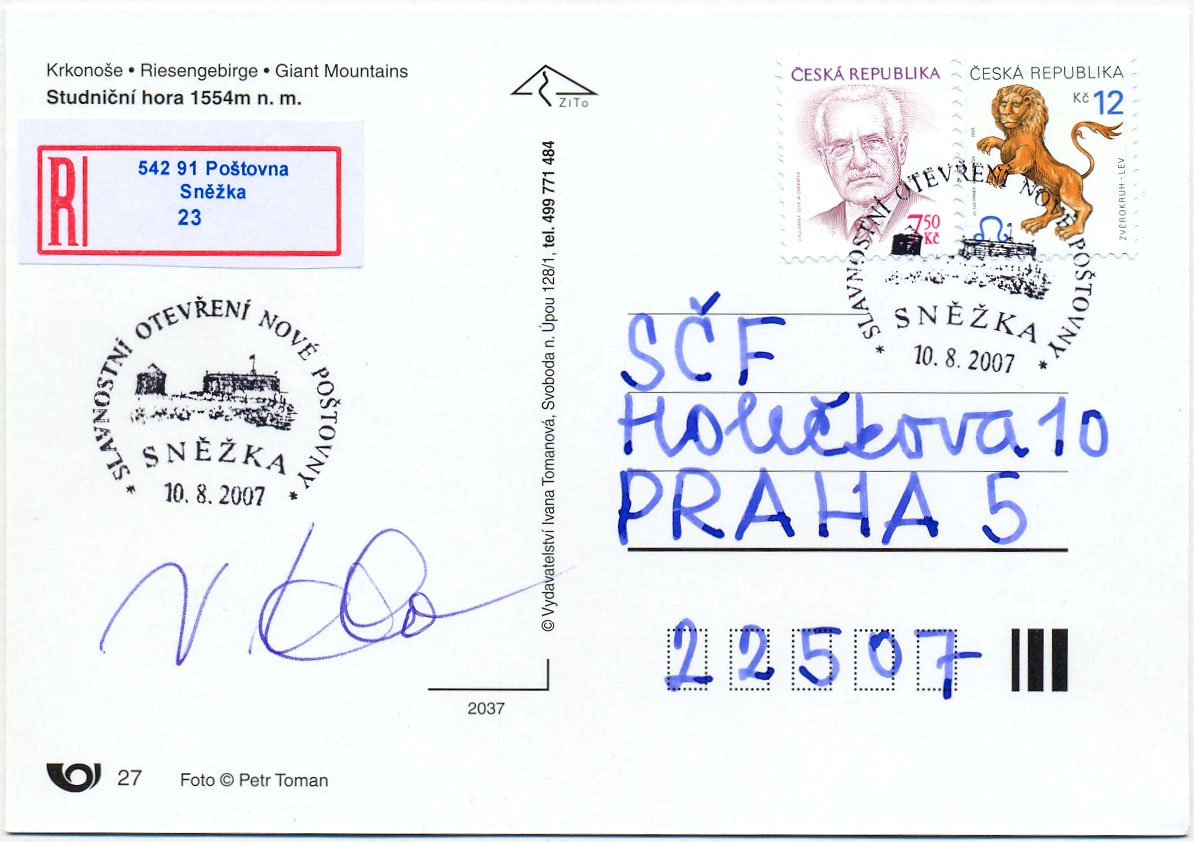 Krkonoše • Riesengebirge • Giant Mountains
Studniční hora 1554m n. m.
R
542 91 Poštovna
Sněžka
23
* SLAVNOSTNÍ OTEVŘENÍ NOVÉ POŠTOVNY *
SNĚŽKA
10. 8. 2007
27
Foto © Petr Toman
ZiTo
© Vydavatelství Ivana Tomanová, Svoboda n. Úpou 128/1, tel. 499 771 484
2037
ČESKÁ REPUBLIKA
7,50
Kč
ČESKÁ REPUBLIKA
Kč 12
ZVĚROKRUH - LEV
* SLAVNOSTNÍ OTEVŘENÍ NOVÉ POŠTOVNY *
SNĚŽKA
10. 8. 2007
SČF
Holečkova 10
PRAHA 5
22507